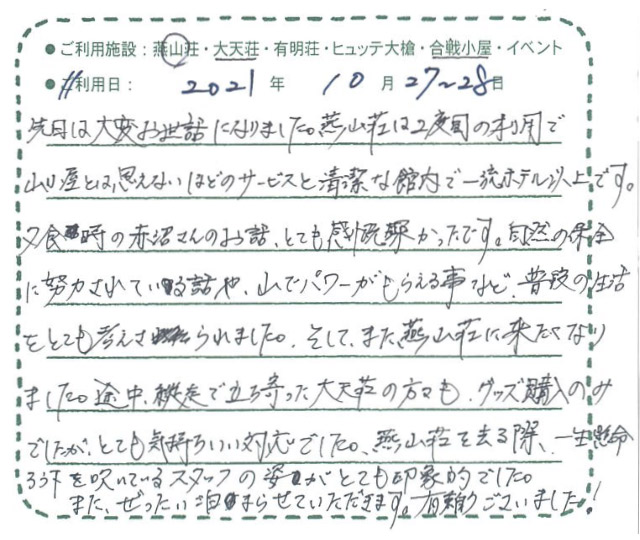 ●ご利用施設：燕山荘・大天荘・有明荘・ヒュッテ大槍・合戦小屋・イベント
●ご利用日： 2021 年 10 月 27〜28日
先日は大変お世話になりました。燕山荘は2度目の利用で
山小屋とは思えないほどのサービスと清潔な館内で一流ホテル以上です。
夕食時の赤沼さんのお話、とても感慨深かったです。自然の保全
に努力されている話や、山でパワーがもらえる事など、普段の生活
をとても考えさせられました。そして、また、燕山荘に来たくなり
ました。途中、縦走で立ち寄った大天荘の方々も、グッズ購入のみ
でしたが、とても気持ちいい対応でした。燕山荘を去る際、一生懸命
を吹いているスタッフの姿がとても印象的でした。
また、ぜったい泊まらせていただきます。有難うございました！